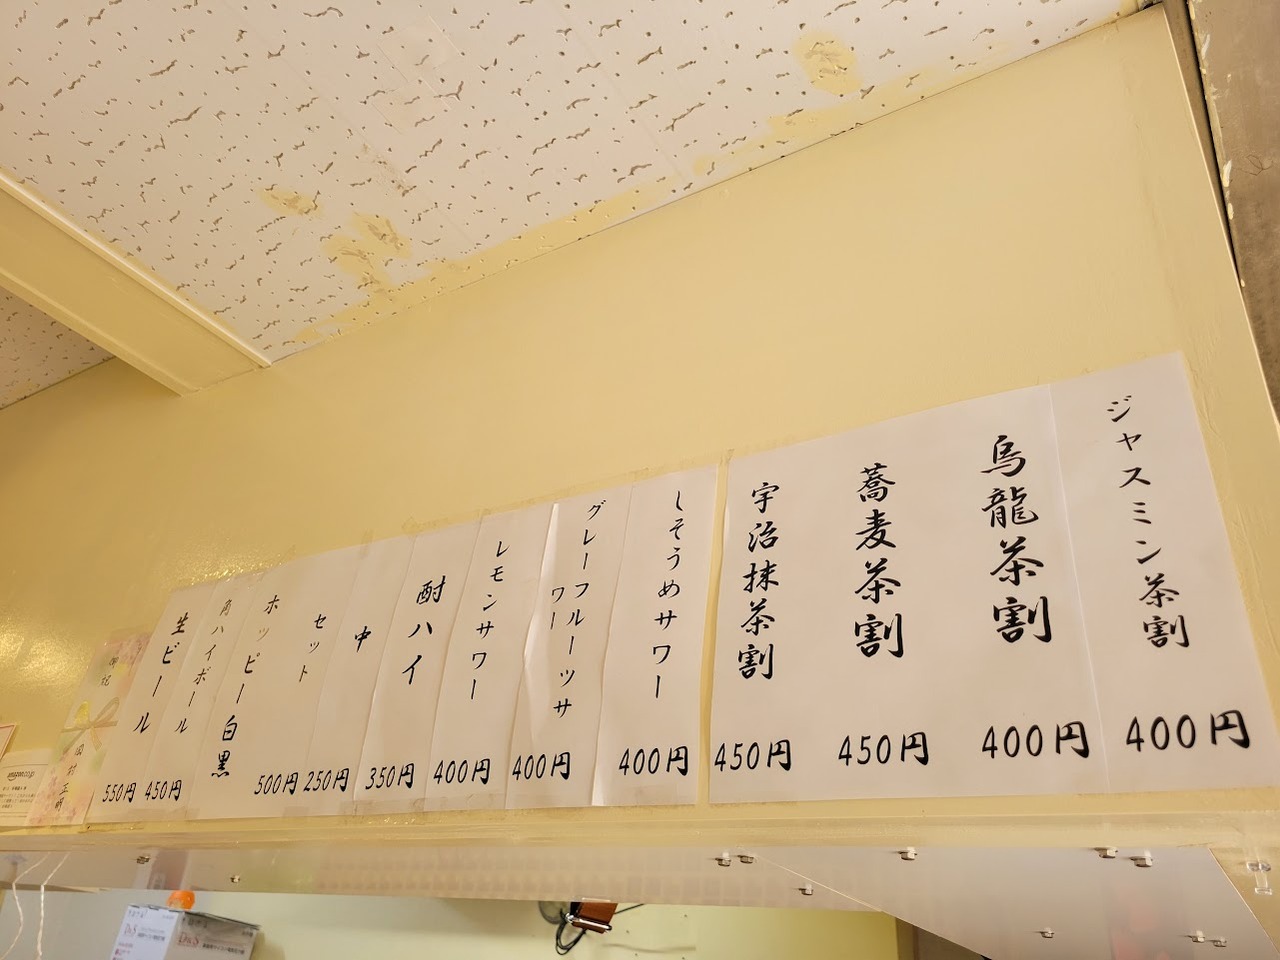 ジャスミン茶割
400円
烏龍茶割
400円
蕎麦茶割
450円
宇治抹茶割
450円
しそうめサワー
400円
グレーフルーツサ
ワー
400円
レモンサワー
400円
酎ハイ
350円
中
250円
セット
500円
ホッピー白黒
角ハイボール
450円
生ビール
550円
御祝
amazon.co.jp
D&S